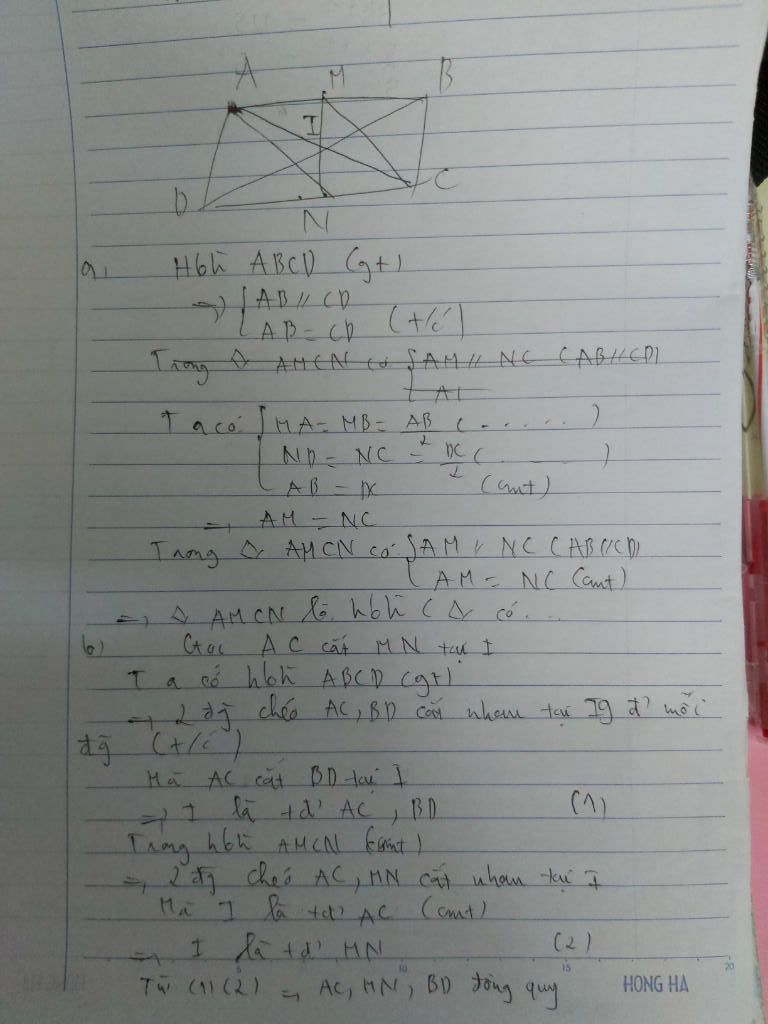 A M B
I
D N C
a, Hbh ABCD (gt)
=> { AB // CD
AB = CD (t/c)
Trong ◇ AMCN có { AM // NC (AB//CD)
AI
Ta có { MA = MB = AB/2 (......)
ND = NC = DC/2 (......)
AB = DC (cmt)
=> AM = NC
Trong ◇ AMCN có { AM // NC (AB//CD)
AM = NC (cmt)
=> ◇ AMCN là hbh (◇ có...
b) Gọi AC cắt MN tại I
Ta có hbh ABCD (gt)
=> 2 đg chéo AC, BD cắt nhau tại tđ' mỗi
đg (t/c)
Mà AC cắt BD tại I
=> I là tđ' AC, BD (1)
Trong hbh AMCN (cmt)
=> 2 đg chéo AC, MN cắt nhau tại I
Mà I là tđ' AC (cmt)
=> I là tđ' MN (2)
Từ (1) (2) => AC, MN, BD đồng quy
5 10 15 20
HONG HA HONG HA